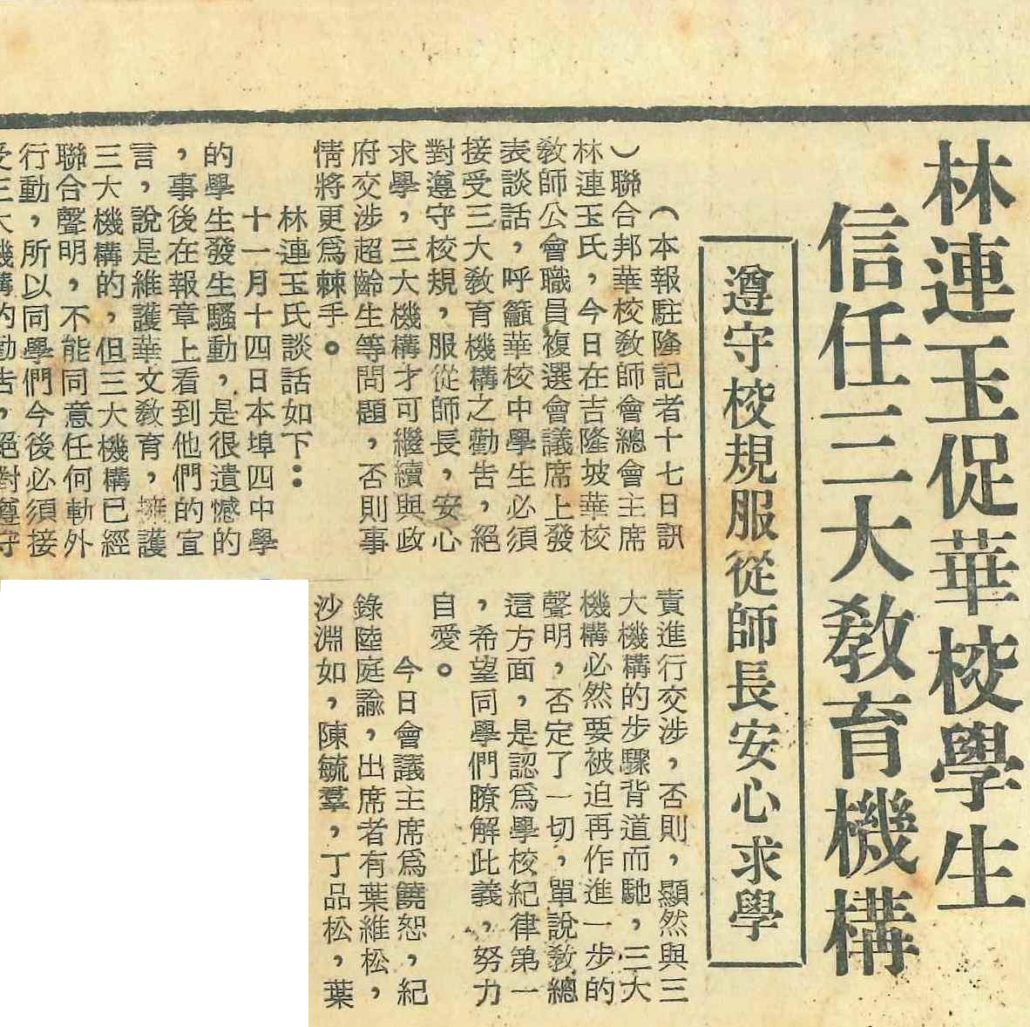 林連玉促華校學生
信任三大教育機構
遵守校規服從師長安心求學
（本報駐隆記者十七日訊
）聯合邦華校教師會總會主席
林連玉氏，今日在吉隆坡華校
教師公會職員複選會議席上發
表談話，呼籲華校中學生必須
接受三大教育機構之勸告，絕
對遵守校規，服從師長，安心
求學，三大機構才可繼續與政
府交涉超齡生等問題，否則事
情將更爲棘手。
林連玉氏談話如下：
十一月十四日本埠四中學
的學生發生騷動，是很遺憾的
，事後在報章上看到他們的宣
言，說是維護華文教育，擁護
三大機構的，但三大機構已經
聯合聲明，不能同意任何軌外
行動，所以同學們今後必須接
受三大機構的勸告，絕對遵守
責進行交涉，否則，顯然與三
大機構的步驟背道而馳，三大
機構必然要被迫再作進一步的
聲明，否定了一切，單說教總
這方面，是認爲學校紀律第一
，希望同學們瞭解此義，努力
自愛。
今日會議主席爲饒恕，紀
錄陸庭諭，出席者有葉維松，
沙淵如，陳毓羣，丁品松，葉